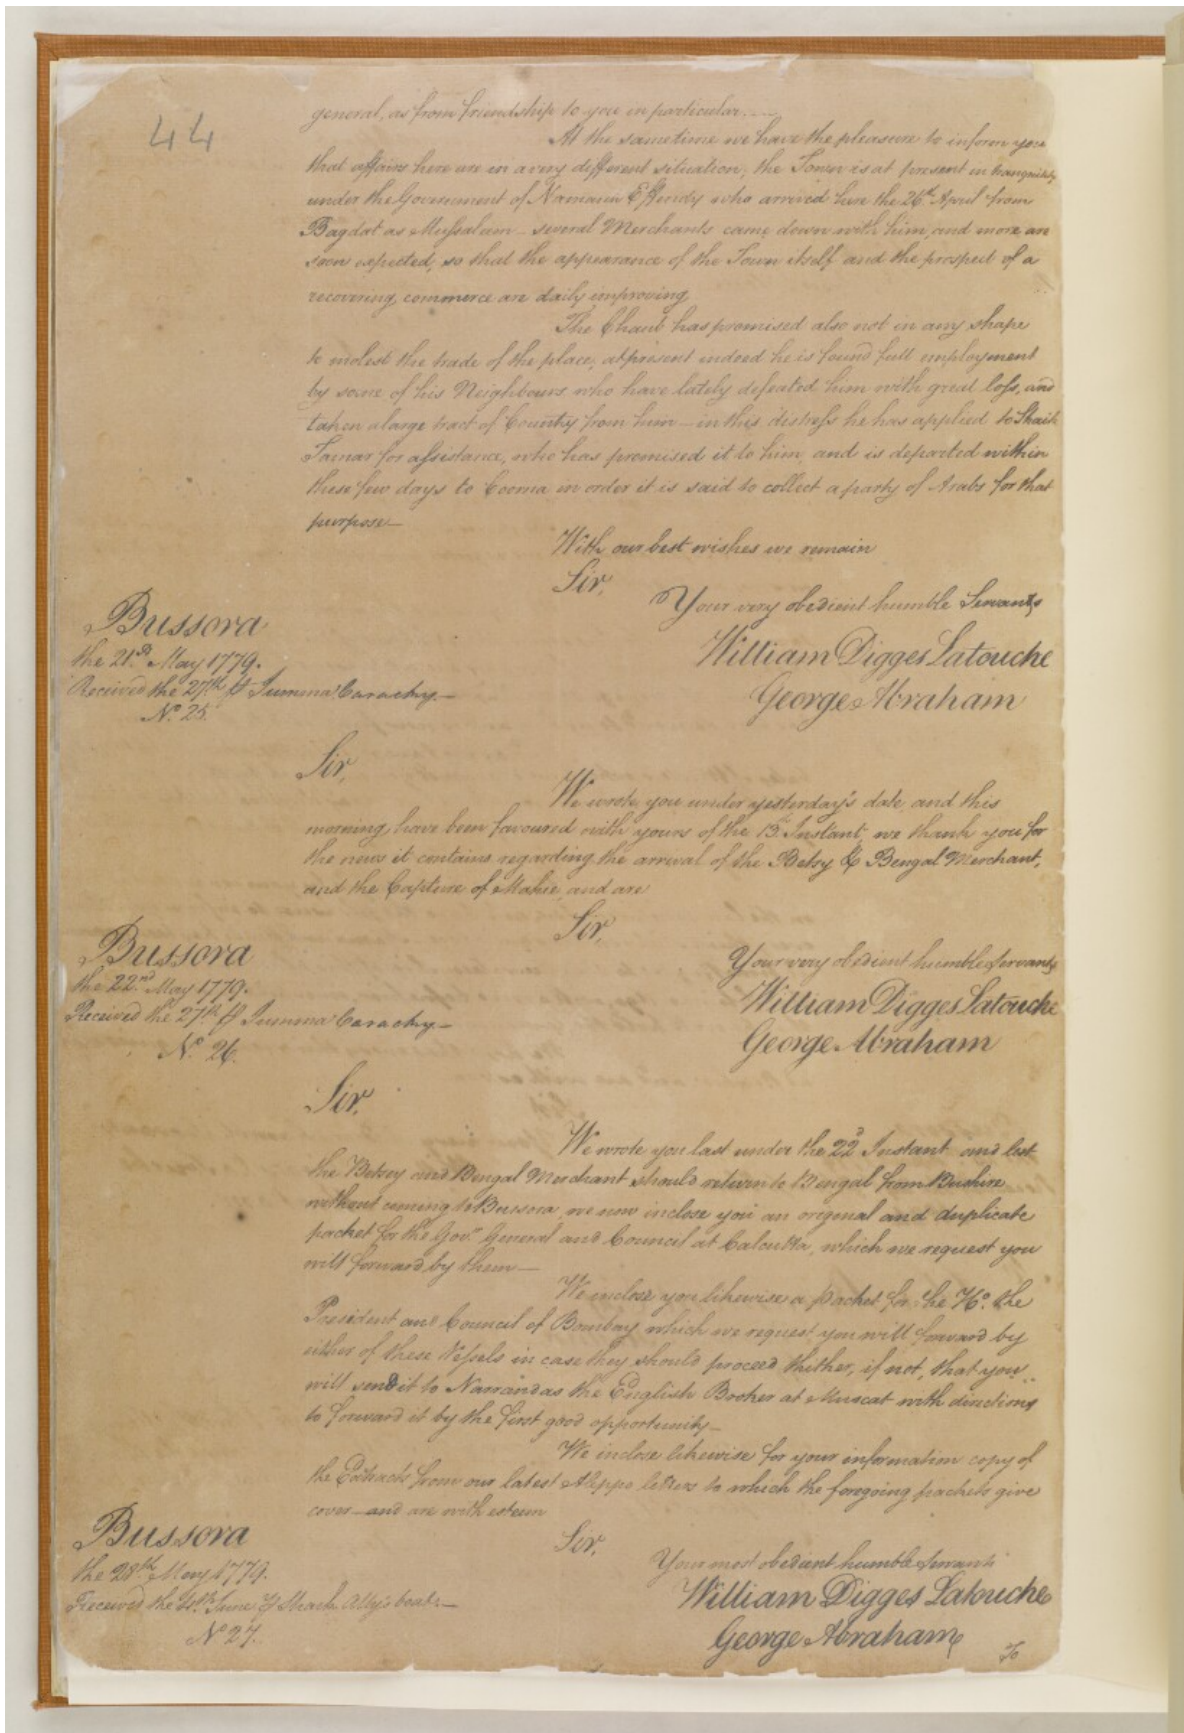 44
general, as from friendship to you in particular.—
At the sametime we have the pleasure to inform you
that affairs here are in a very different situation, the Town is at present in tranquility
under the Government of Effendy who arrived here the 26th April from
Bagdat as Mussalem — several Merchants came down with him, and more are
soon expected, so that the appearance of the Town itself and the prospect of a
recovering commerce are daily improving
The Chaub has promised also not in any shape
to molest the trade of the place, at present indeed he is found full employment
by some of his Neighbours who have lately defeated him with great loss, and
taken a large tract of Country from him — in this distress he has applied to Shaik
Tamar for assistance, who has promised it to him, and is departed within
these few days to Coorna in order it is said to collect a party of Arabs for that
purpose —
With our best wishes we remain
Sir,
Your very obedient humble Servants
William Digges Latouche
George Abraham
Bussora
the 21st May 1779.
Received the 27th p Jumma Carachy —
No. 25.
Sir,
We wrote you under yesterday's date, and this
morning have been favoured with yours of the 13 Instant, we thank you for
the news it contains regarding the arrival of the Betsy & Bengal Merchant,
and the Capture of Mahie, and are
Sir,
Your very obedient humble Servants
William Digges Latouche
George Abraham
Bussora
the 22nd May 1779.
Received the 27th p Jumma Carachy —
No. 26.
Sir,
We wrote you last under the 22d Instant and lest
the Betsey and Bengal Merchant should return to Bengal from Bushire
without coming to Bussora, we now inclose you an original and duplicate
packet for the Govr. General and Council at Calcutta, which we request you
will forward by them —
We inclose you likewise a packet for the Ho. the
President and Council of Bombay which we request you will forward by
either of these Vessels in case they should proceed thither, if not, that you
will send it to Narrandas the English Broker at Muscat with directions
to forward it by the first good opportunity —
We inclose likewise for your information copy of
the Extracts from our latest Aleppo letters to which the foregoing packets give
cover — and are with esteem
Sir,
Your most obedient humble Servants
William Digges Latouche
George Abraham
Bussora
the 28th May 1779.
Received the June p Shaik Ally's boat. —
No 27.
To